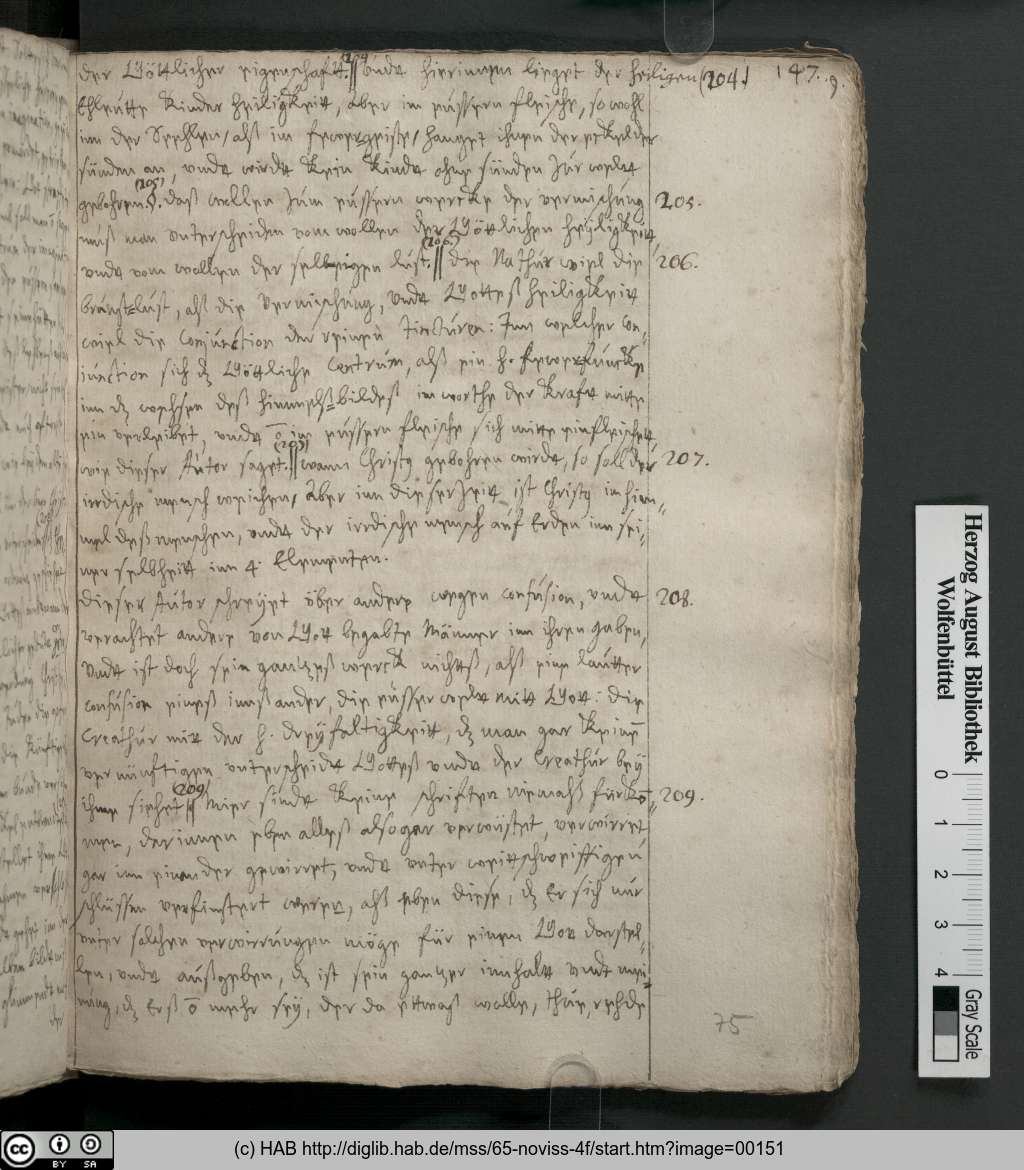 der Göttlichen eigenschafft.|| (204) Undt hierinnen lieget der heiligen (204.) 147. 9.
Ehleütte Kinder heiligkeitt, aber im eüsseren fleische, so wohl
inn der Seehlen, alß im fewergeiste, hanget ihnen der eckel der
sünden an, undt wirdt kein Kindt ohne sünden zur weldt
gebohren. (205) Daß wollen zum eüssern wercke der vermischung 205.
muß man unterscheiden vom wollen der Göttlichen heyligkeitt,
undt vom wollen der selbeigen lust.|| (206.) die Nathur wiel die 206.
brunst-lust, alß die Vermischung, undt Gotteß heiligkeit
wiel die Conjunction der reinen Tincturen: Inn welcher Con-
junction sich dz Göttliche Centrum, alß ein h. fewerfuncke
inn dz wehsen deß himmelß-bildeß im worthe der Krafft mitte
ein verleibet, undt ō im eüssern fleische sich mitte einfleischet,
wie dieser Autor saget.|| (207) wann Christ9 gebohren wirdt, so soll der 207.
irrdische mensch weichen, Aber inn dieser Zeit ist Christ9 im him-
mel deß menschen, undt der irrdische mensch auf Erden inn sei-
ner selbheitt inn 4. Elementen.
Dieser Autor schreyet über andere wegen confusion, undt 208.
verachtet andere von Gott begabte Männer inn ihren gaben,
Undt ist doch sein gantzeß werck nichtß, alß eine lautter
confusion eineß inß ander, die eüsser weldt mitt Gott: die
Creathur mitt der h. dreyfaltigkeitt, dz man gar keinē
vernünftigen unterscheidt Gotteß undt der Creathur bey
ihme siehet || (209) Mier sindt keine schriften niemalß fürkō- 209.
men, darinnen eben alleß also gar verwüstet, verwirret,
gar inn einander gewirret, undt unter weittschweiffigen
schlüssen verfinstert weren, alß eben diese, dz Er sich nur
unter solchen verwirrungen möge für einen Gott darstel-
len, undt außgeben, dz ist sein gantzer innhalt undt mei-
nung, dz Erß ō mehr sey, der da ettwaß wolle, thue, rehde
75
Herzog August Bibliothek
Wolfenbüttel
0 1 2 3 4
Gray Scale
CC BY SA
(c) HAB http://diglib.hab.de/mss/65-noviss-4f/start.htm?image=00151